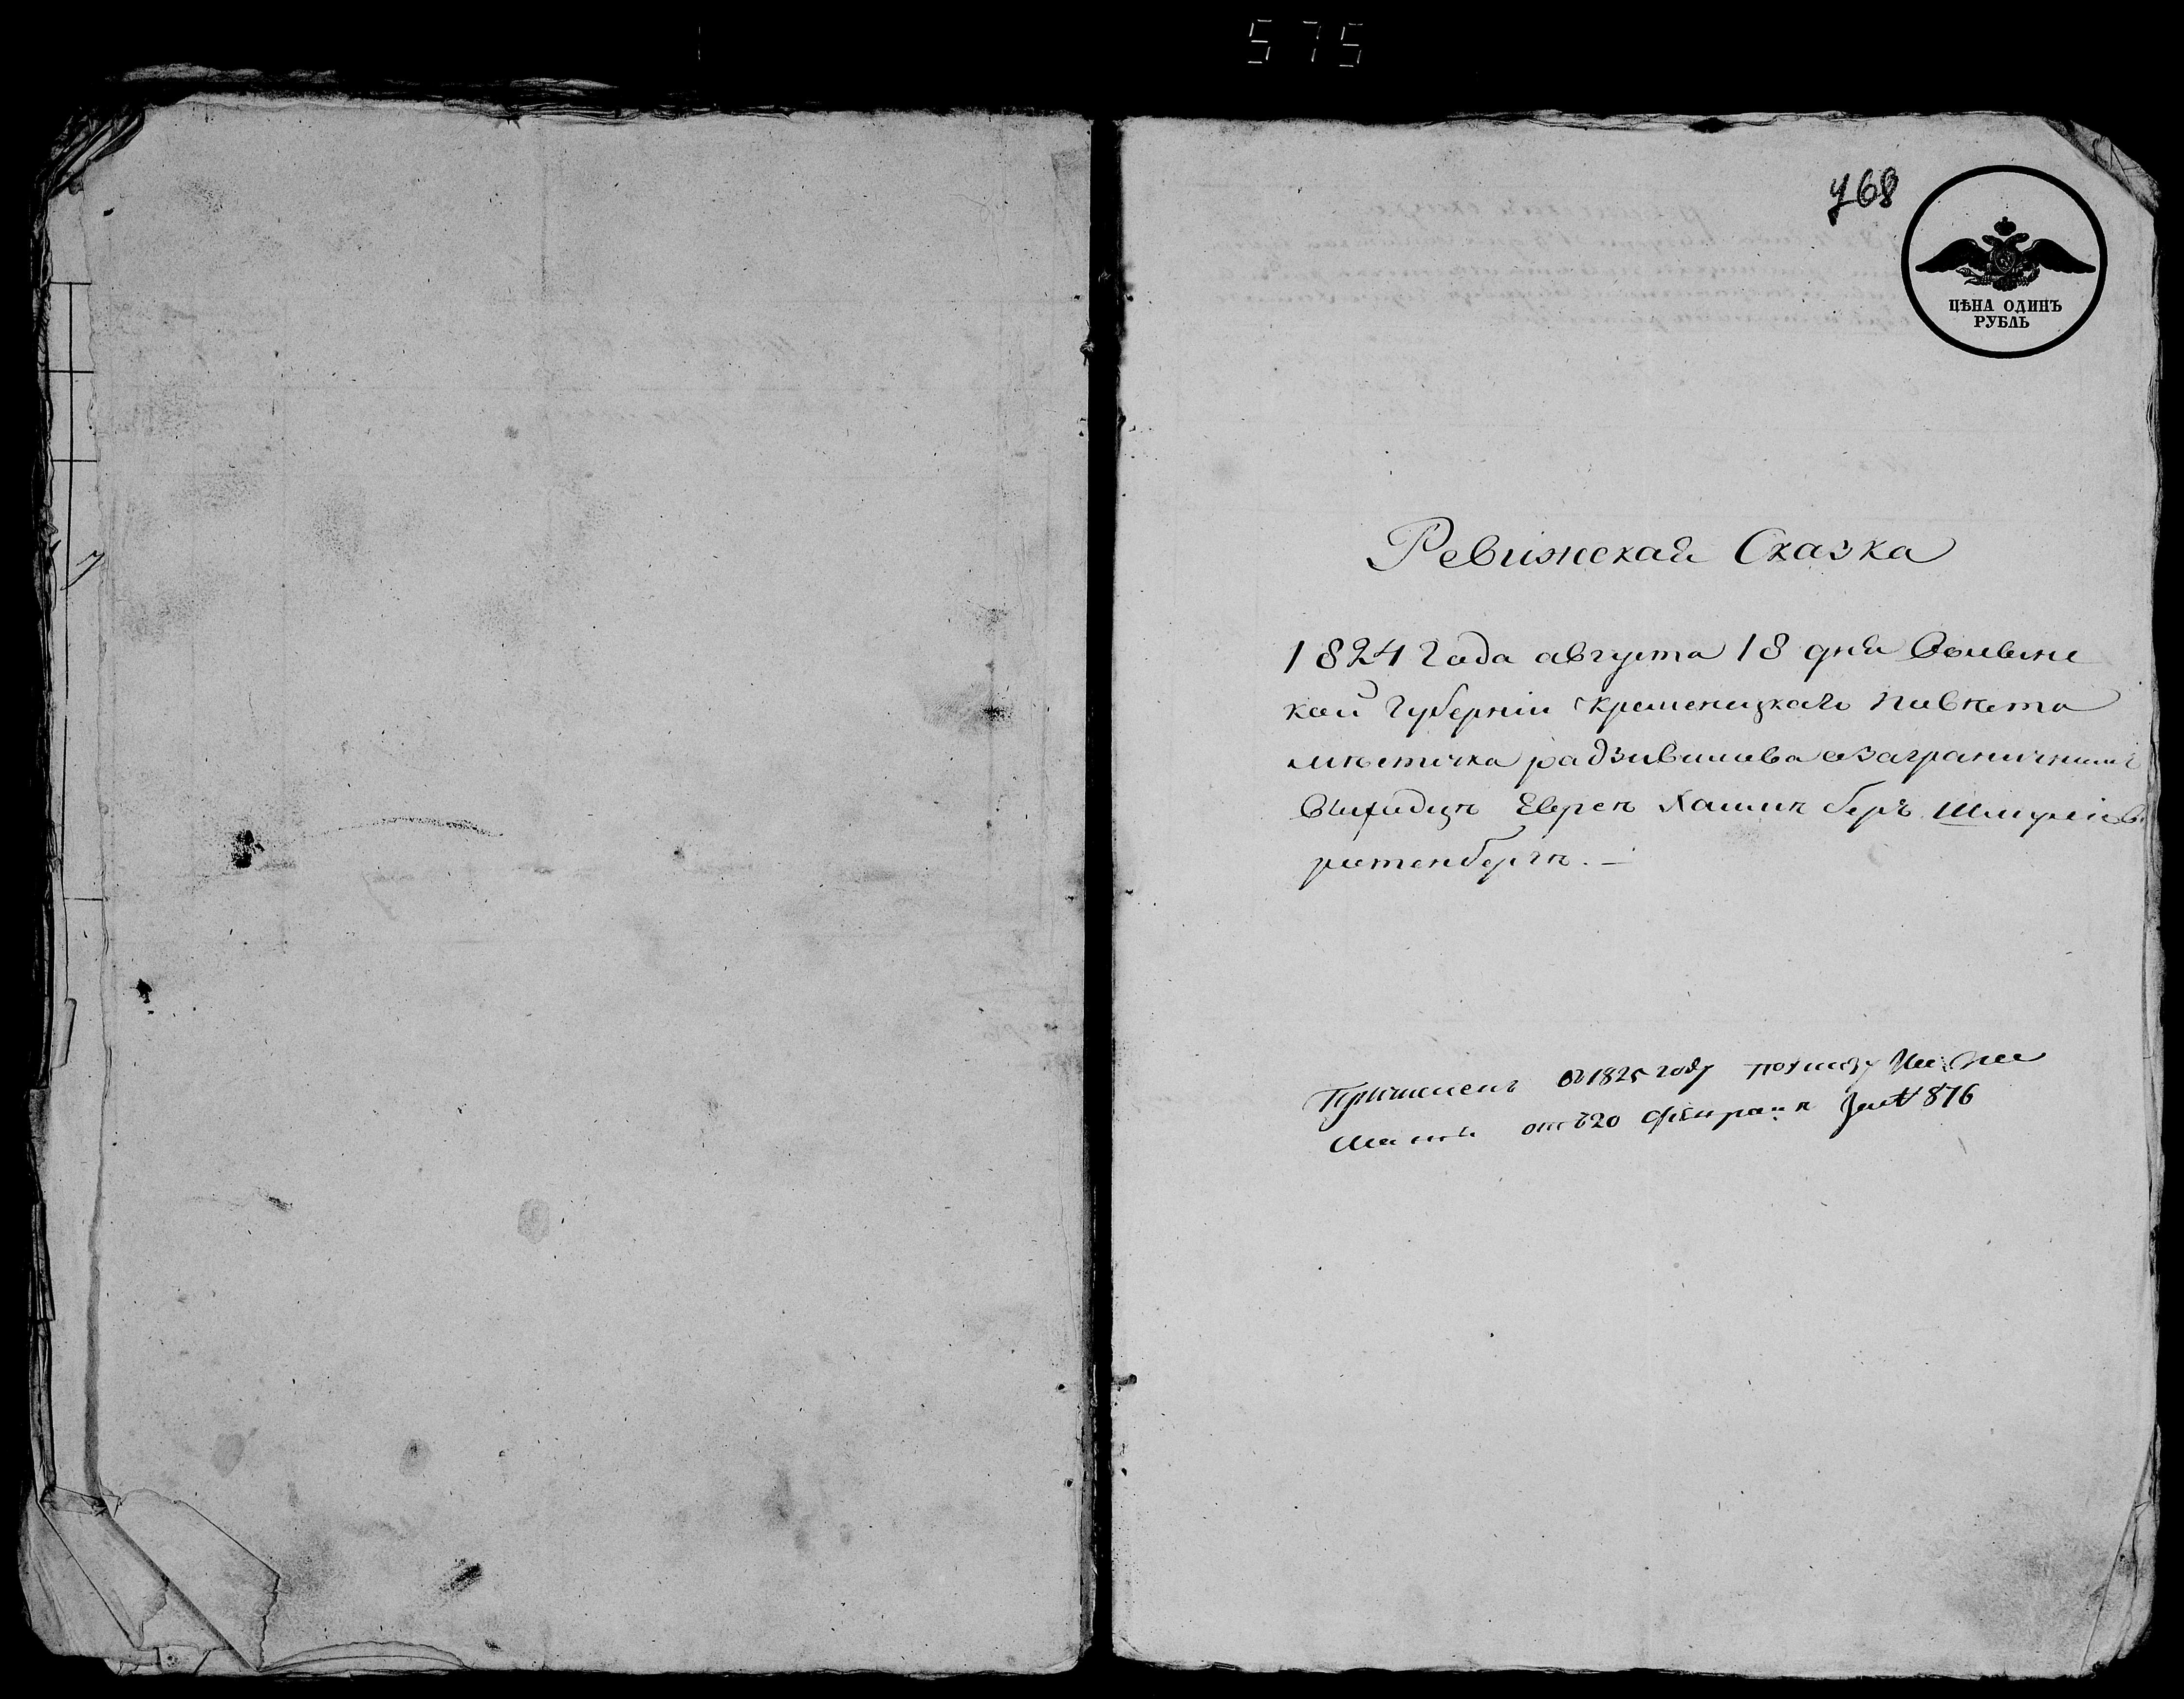 575
768
ЦѢНА ОДИНЪ
РУБЛЬ
Ревижская Сказка
1824 Года августа 18 дня Волынс
кой Губерніи Кременецкаго Повѣта
мѣстечка радзивилова о заграничнимъ
Выходцѣ Евреѣ Хаимѣ берѣ Шмулевѣ
ретенбергѣ. —
Причисленъ въ 1825 году по указу
отъ 20 февраля за № 876